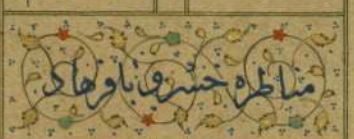 مناظره خسرو با فرهاد